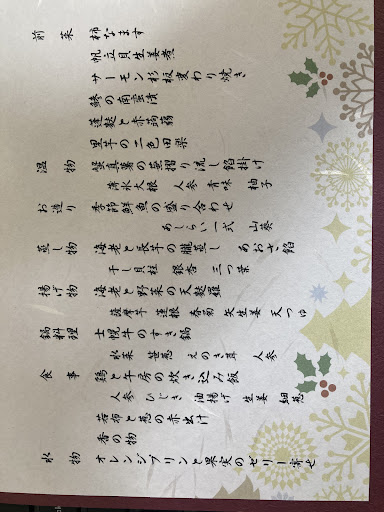 前菜 柿なます
帆立貝生姜煮
サーモン杉板変わり焼き
鯵の南蛮漬
蓬麩と赤蒟蒻
黒羊の二色田楽
温物 蟹真薯の蕪摺り流し餡掛け
薄氷大根 人参 青味 柚子
お造り 季節鮮魚の盛り合わせ
あしらい一式 山葵
蒸し物 海老と長芋の朧蒸し あおさ餡
干し貝柱 銀杏 三つ葉
揚げ物 海老と野菜の天麩羅
薩摩芋 蓮根 春菊 矢生姜 天つゆ
鍋料理 士幌牛のすき鍋
水菜 笹葱 えのき茸 人参
食事 鶏と牛房の炊き込み飯
人参 ひじき 油揚げ 生姜 細葱
若布と葱の赤出汁
香の物
水物 オレンジプリンと果実のゼリー寄せ